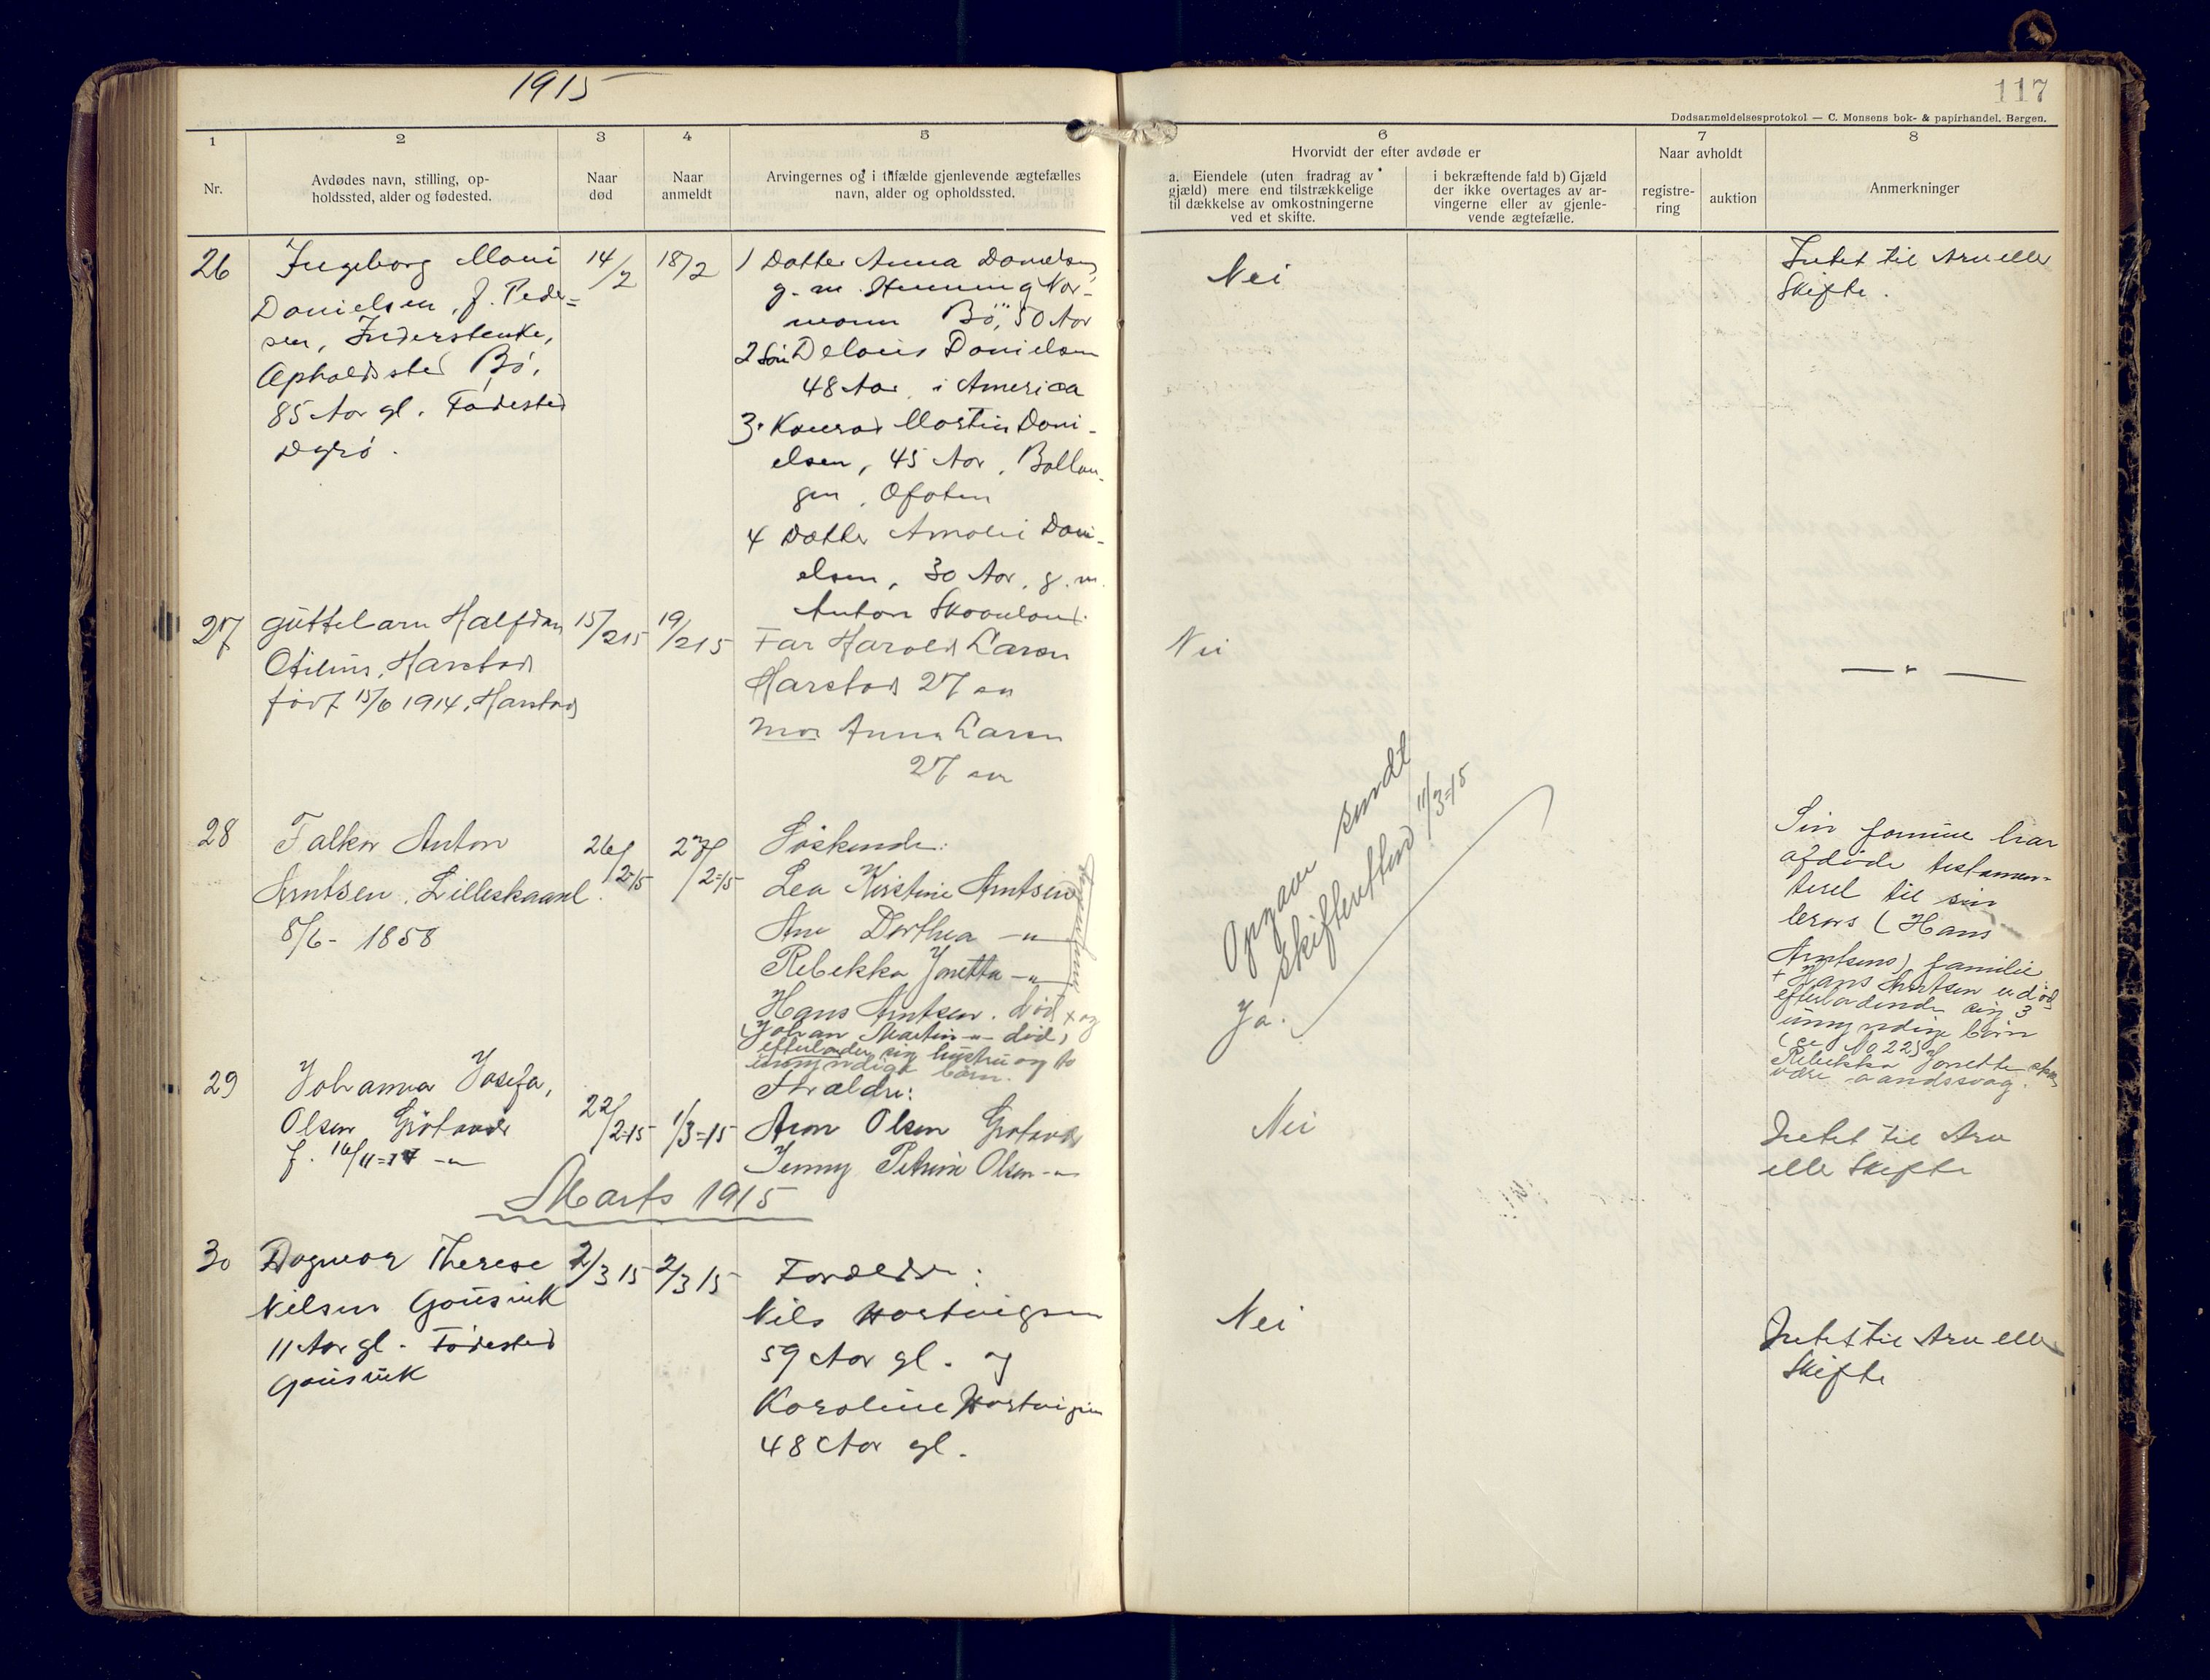 1915
117
Dødsanmeldelsesprotokol — C. Monsens bok- & papirhandel, Bergen.
1
2
3
4
5
6
7
8
Nr.
Avdødes navn, stilling, op-
holdssted, alder og fødested.
Naar
død
Naar
anmeldt
Arvingernes og i tilfælde gjenlevende ægtefælles
navn, alder og opholdssted.
Hvorvidt der efter avdøde er
a. Eiendele (uten fradrag av
gjæld) mere end tilstrækkelige
til dækkelse av omkostningerne
ved et skifte.
i bekræftende fald b) Gjæld
der ikke overtages av ar-
vingerne eller av gjenle-
vende ægtefælle.
Naar avholdt
registre-
ring
auktion
Anmerkninger
26
Ingeborg Marie
Danielsen, f. Peder-
sen, Inderstenke,
Opholdssted Bø,
85 Aar gl. Fødested
Dyrø.
14/2
18/2
1 Datter Anna Danielsen
g. m. Henning Nor-
mann Bø, 50 Aar
2 Søn Delovis Danielsen
48 Aar, i America
3. Konrad Martin Dani-
elsen, 45 Aar, Ballan-
gen, Ofoten
4 Datter Amalie Dani-
elsen, 30 Aar, g. m.
Anton Skovland.
Nei
Intet til Arv eller
Skifte.
27
Guttebarn Halfdan
Otilius, Harstad
født 15/6 1914, Harstad
15/2 15
19/2 15
Far Harold Larsen
Harstad 27 aar
Mor Anna Larsen
27 aar
Nei
— " —
28
Falkor Anton
Arntsen, Lilleskaanl.
8/6 - 1858
26/2-15
27/2-15
Søskende:
Lea Kirstine Arntsen
Ane Dorthea — " —
Rebekka Jonetta — " —
Hans Arntsen. død x og
(Johan Martin - " - død,
efterlader sig hustru og to
umyndige børn.
Opgave sendt
Skifteretten 11/3-15
Ja.
Sin formue har
afdøde testamen-
teret til sin
brors (Hans
Arntsens) familie.
+ Hans Arntsen er død
efterladende sig 3
umyndige børn
(se No 22)
Rebekka Jonette skal
være aandssvag.
29
Johanna Josefa,
Olsen Grøtavær
f. 16/11-14 - " -
22/2-15
1/3-15
Forældre:
Aron Olsen Grøtavær
Jenny Petrine Olsen - " -
Nei
Intet til Arv
eller Skifte
Marts 1915
30
Dagmar Therese
Nilsen Gausvik
11 Aar gl. Fødested
Gausvik
2/3 15
2/3 15
Forældre:
Nils Hartvigsen
59 Aar gl. og
Karoline Hartvigsen
48 Aar gl.
Nei
Intet til Arv eller
Skifte